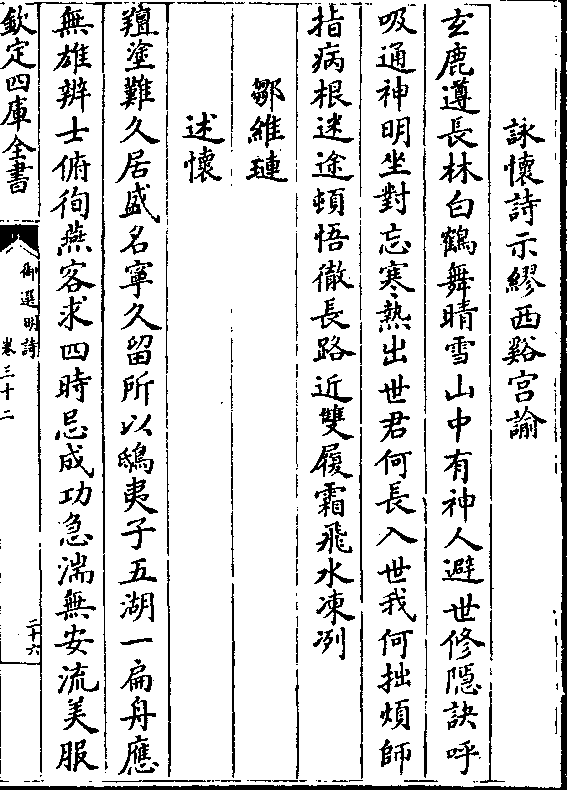 詠懷詩示繆西谿宫諭
玄鹿遵長林白鶴舞晴雪山中有神人避世修隱訣呼
吸通神明坐對忘寒熱出世君何長入世我何拙煩師
指病根迷途頓悟徹長路近雙履霜飛水凍冽
鄒維璉
述懷
羶塗難久居盛名寧久留所以鴟夷子五湖一扁舟應
無雄辨士俯徇燕客求四時忌成功急湍無安流美服
欽定四庫全書
御選明詩
卷三十二
二十六